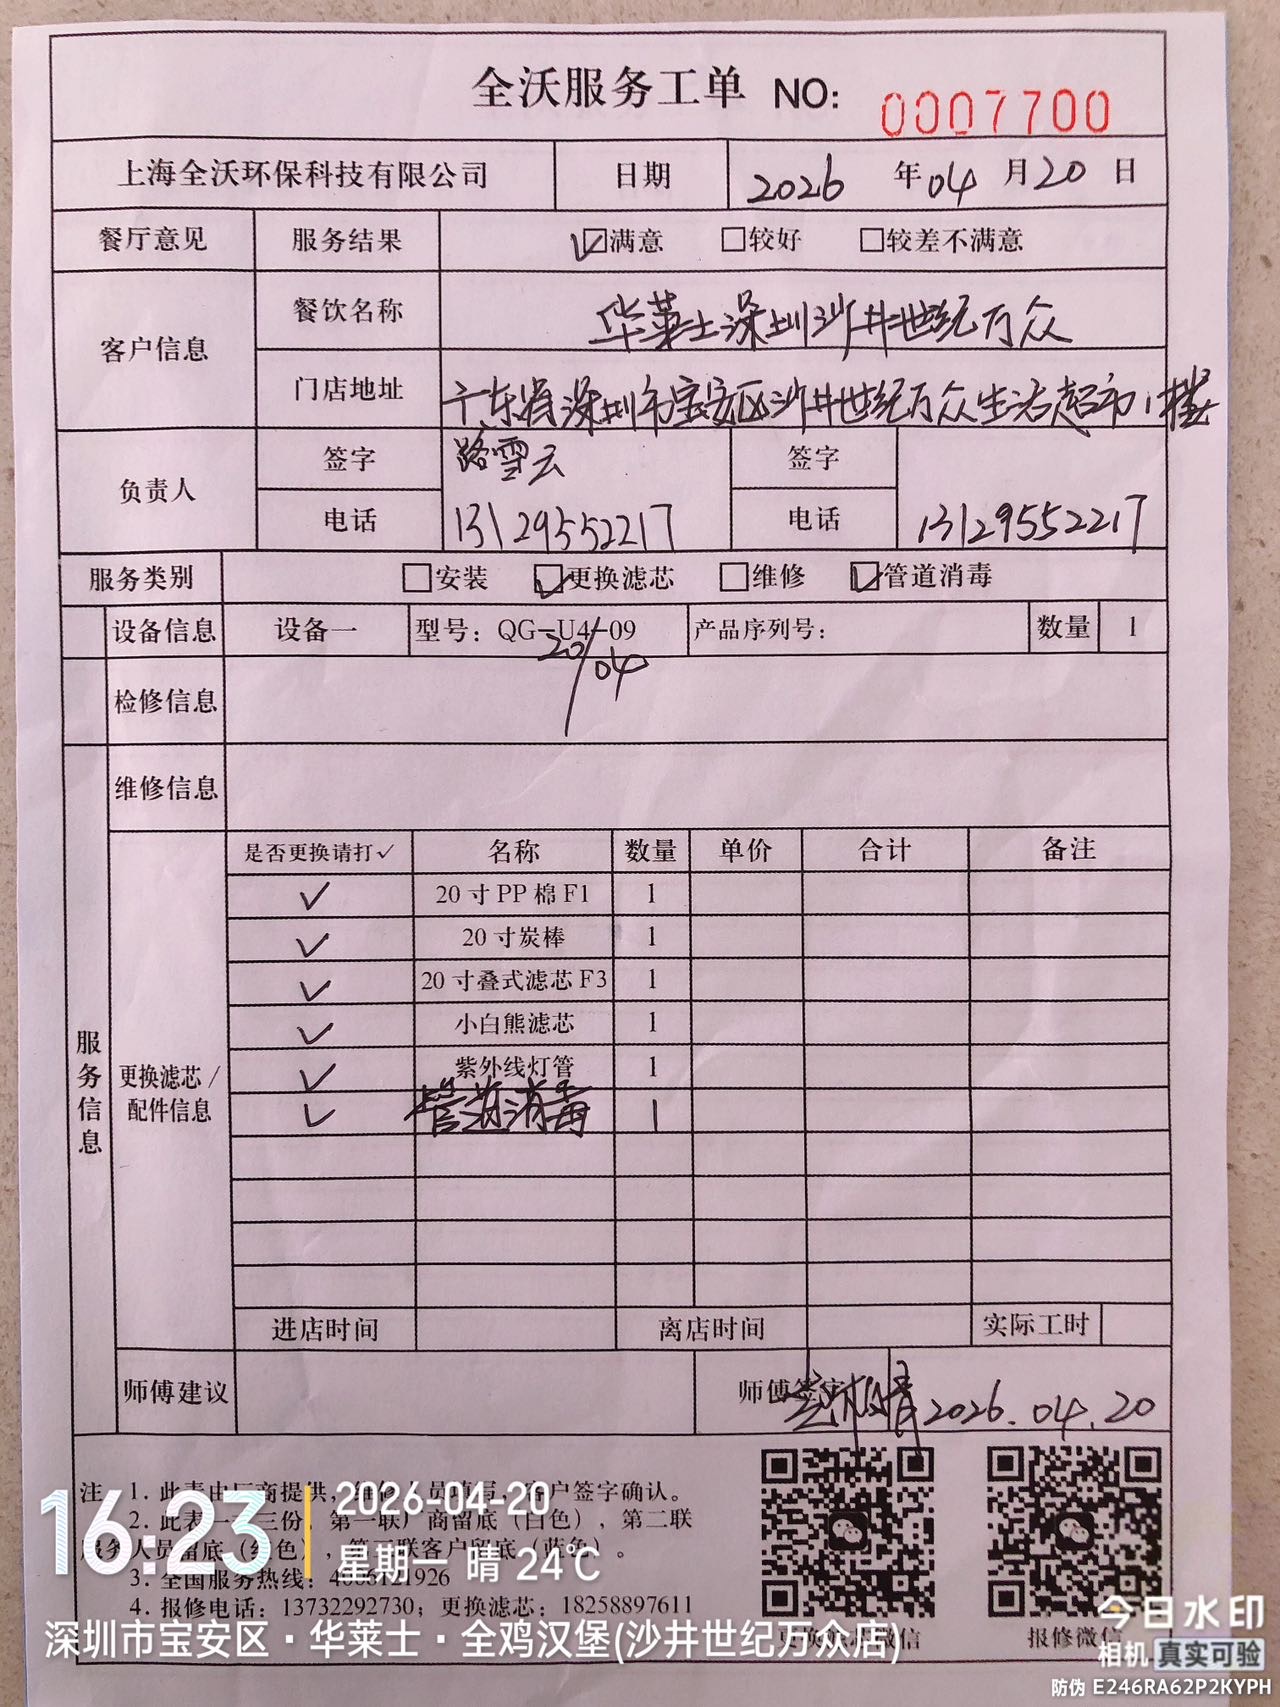 全沃服务工单 NO: 0007700
上海全沃环保科技有限公司 日期 2026 年 04 月 20 日
餐厅意见 服务结果 ☑满意 □较好 □较差不满意
客户信息 餐饮名称 华莱士深圳沙井世纪万众
门店地址 广东省深圳市宝安区沙井世纪万众生活超市1楼
负责人 签字 路雪云 签字
电话 13129552217 电话 13129552217
服务类别 □安装 ☑更换滤芯 □维修 ☑管道消毒
设备信息 设备一 型号：QG-U4-09 产品序列号： 数量 1
20/04
检修信息
维修信息
服务信息
更换滤芯/配件信息
是否更换请打✓ 名称 数量 单价 合计 备注
✓ 20寸PP棉F1 1
✓ 20寸炭棒 1
✓ 20寸叠式滤芯F3 1
✓ 小白熊滤芯 1
✓ 紫外线灯管 1
✓ 管道消毒 1
进店时间 离店时间 实际工时
师傅建议 师傅签字 2026.04.20
注 1. 此表由厂商提供，维修人员填写，客户签字确认。
2. 此表一式三份，第一联厂商留底（白色），第二联
服务人员留底（红色），第三联客户留底（蓝色）。
3. 全国服务热线：4006121926
4. 报修电话：13732292730；更换滤芯：18258897611
报修微信
16:23
2026-04-20
星期一 晴 24℃
深圳市宝安区·华莱士·全鸡汉堡(沙井世纪万众店)
今日水印
相机 真实可验
防伪 E246RA62P2KYPH